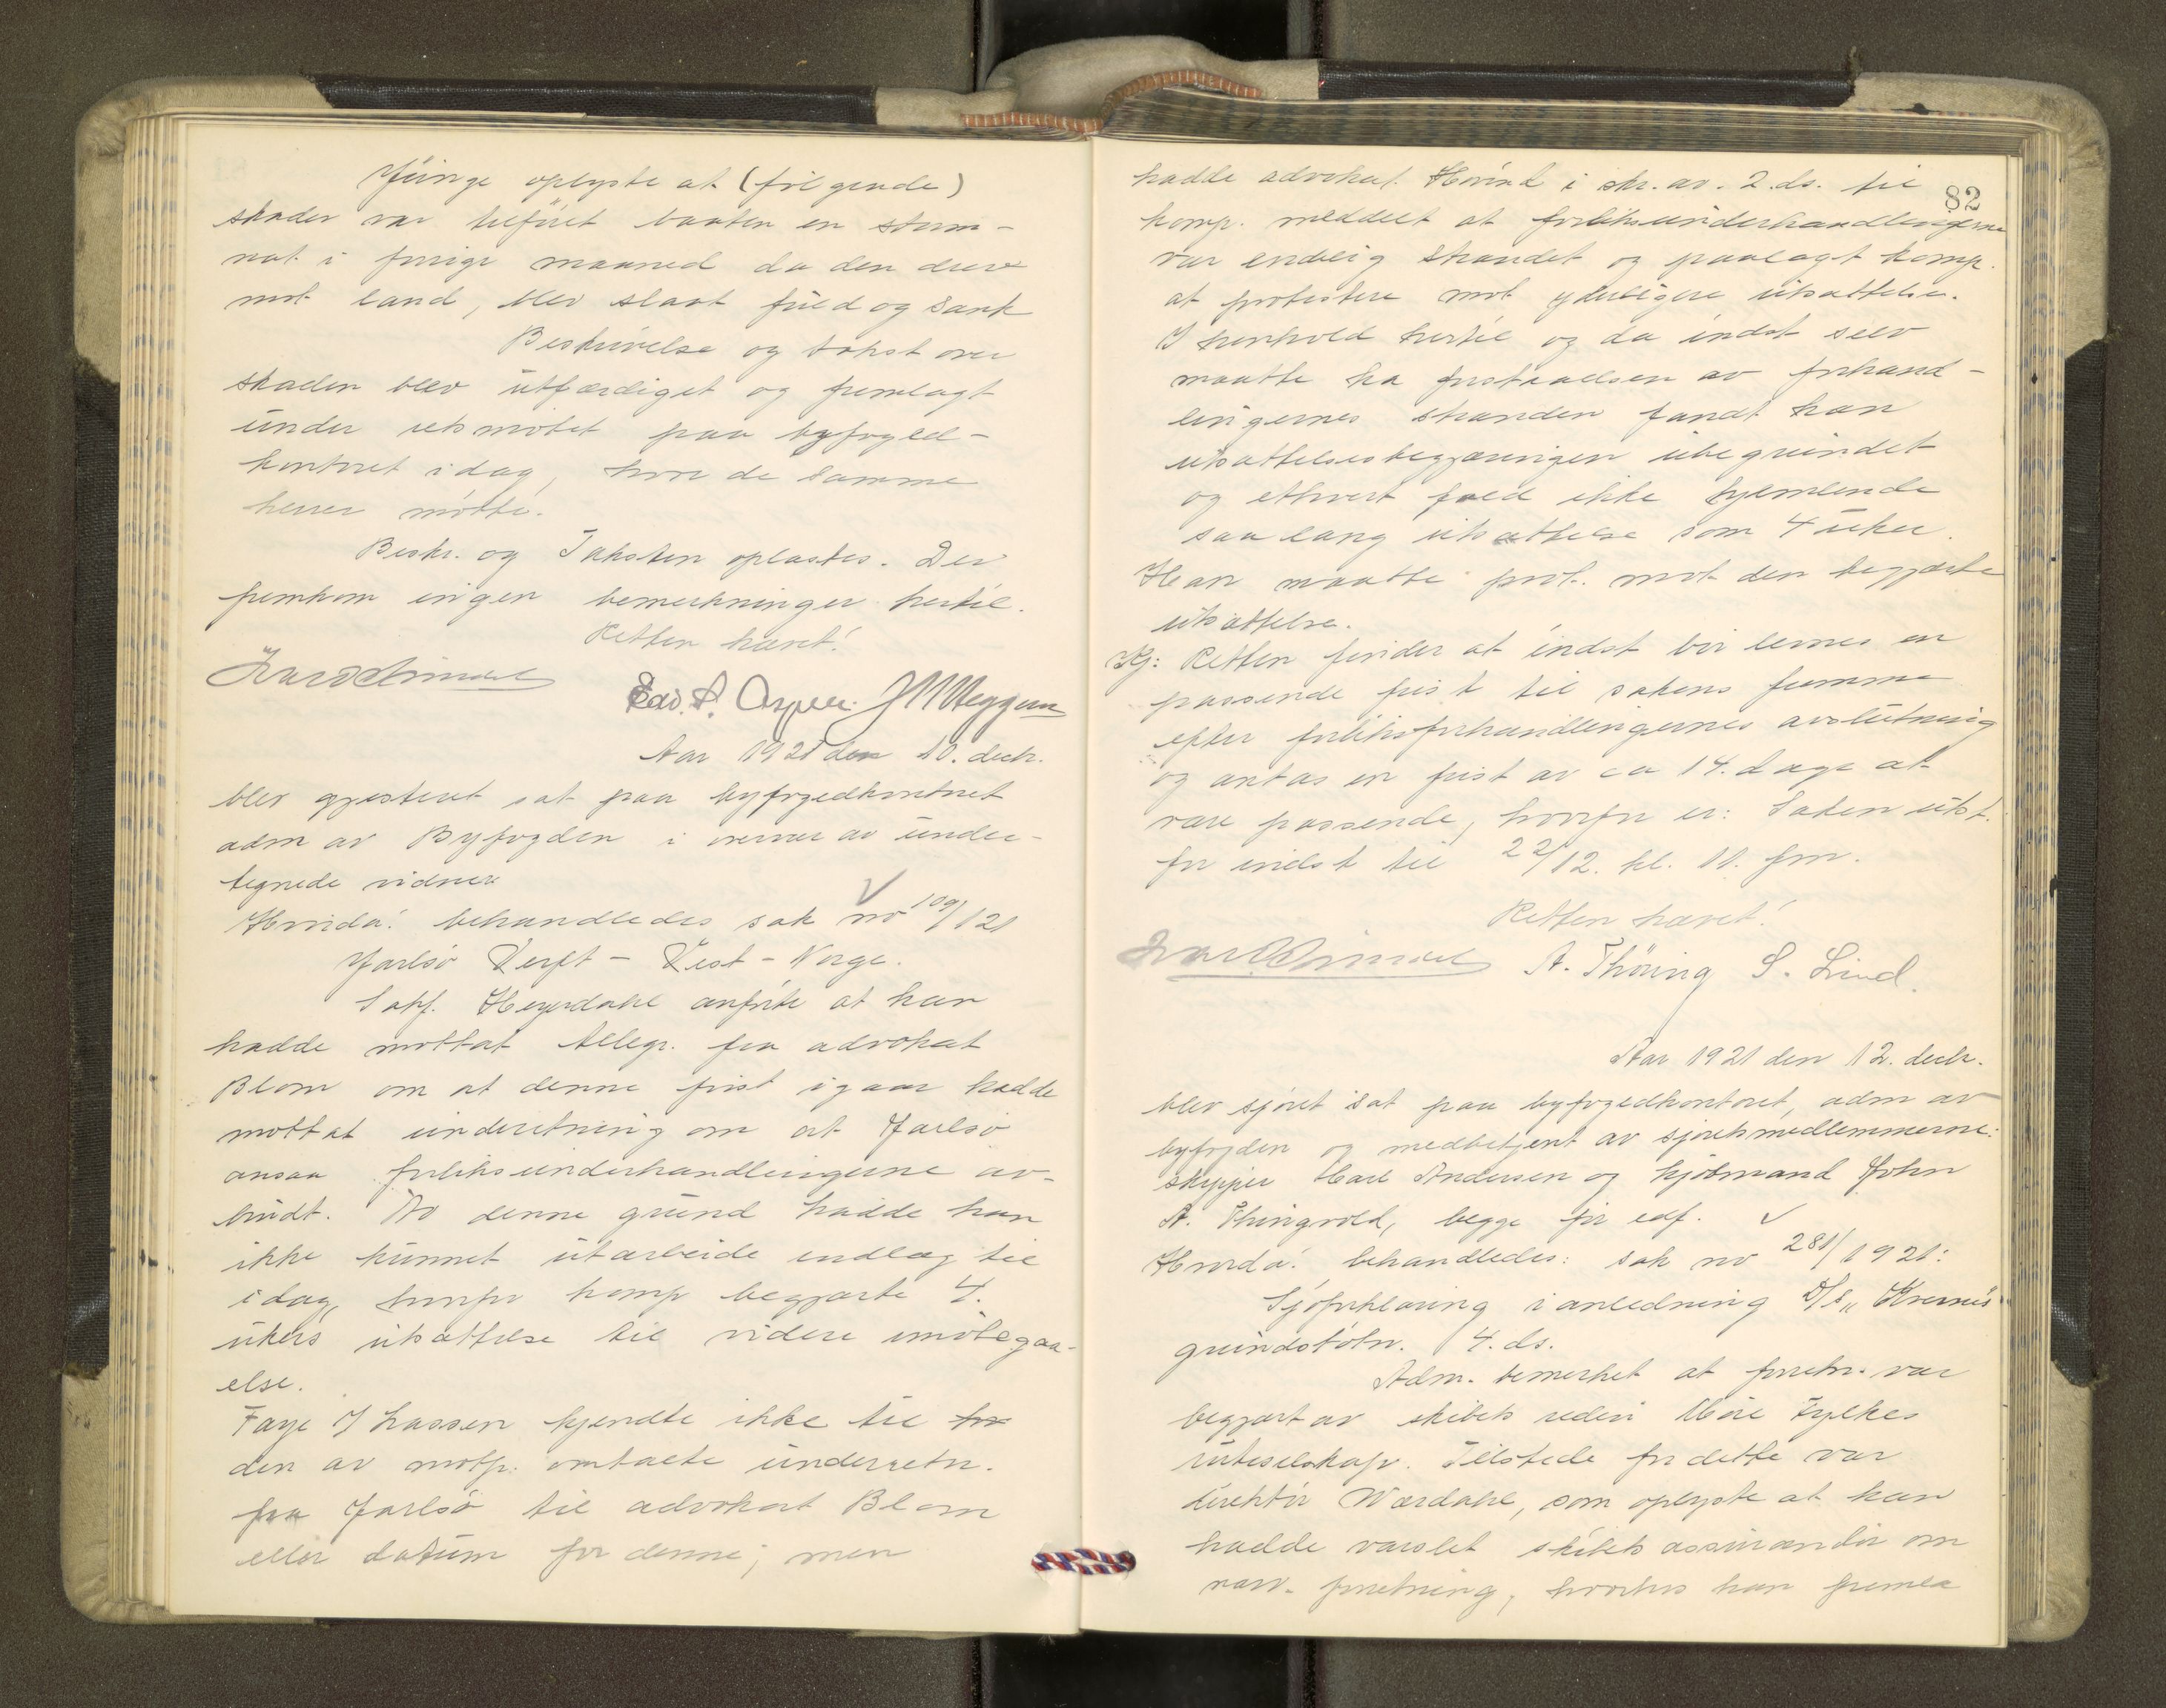 Yünge oplyste at (følgende)
skader var tilføiet baaten en storm-
nat i forrige maaned da den drev
mot land, blev slaat fuld og sank
Beskrivelse og takst over
skaden blev utfærdiget og fremlagt
under retsmøtet paa byfoged-
kontoret idag, hvor de samme
herrer møtte.
Beskr. og Taksten oplæstes. Der
fremkom ingen bemerkninger hertil.
Retten hævet!
Edv. S. Asper. J M Meggem
Aar 1921 den 10. decbr.
blev gjesteret sat paa byfogedkontoret
adm av Byfogden i overvær av under-
tegnede vidner
Hvorda! behandledes sak no 109/121
Jarlsø Verft - Vest-Norge.
Sakf. Heyerdahl anførte at han
hadde mottat telegr. fra advokat
Blom om at denne først igaar hadde
mottat underetning om at Jarlsø
ansaa forliksunderhandlingerne av-
brudt. Av denne grund hadde han
ikke kunnet utarbeide indlæg til
idag, hvorfor komp begjærte 4.
ukers utsættelse til videre imøtegaa-
else.
Faye J hassen kjendte ikke til
den av motp. omtalte underretn.
fra Jarlsø til advokat Blom
eller datum for denne; men
82
hadde advokat Hovind i skr. av. 2. ds. til
komp. meddelt at forliksunderhandlingerne
var endelig strandet og paalagt komp.
at protestere mot yderligere utsættelse.
I henhold hertil og da indst selv
maatte ha forstaaelsen av forhand-
lingernes stranden fandt han
utsættelsesbegjæringen ubegrundet
og ethvert fald ikke hjemlende
saa lang utsættelse som 4 uker.
Han maatte prot. mot den begjærte
utsættelse.
Kj: Retten finder at indst bør levnes en
passende frist til sakens fremme
efter forliksforhandlingernes avslutning
og antas en frist av ca 14. dage at
være passende, hvorfor er: Saken utst.
for indst til 22/12. kl. 11. fm.
Retten hævet!
A. Thüring S. Lind.
Aar 1921 den 12. decbr.
blev sjøret sat paa byfogedkontoret, adm av
byfogden og medbetjent av sjøretsmedlemmerne:
skipper Karl Andersen og kjøbmand John
A. Thingvold, begge før edf.
Hvorda! behandledes: sak no 281/1921:
Sjøforklaring i anledning D/s „Kvernes
grundstøtn. 4. ds.
Adm. bemerket at forretn. var
begjært av skibets rederi Møre Fylkes
ruteselskap. Tilstede for dette var
direktør Wærdahl, som oplyste at han
hadde varslet skibets assurandør om
nærv. forretning, hvorhos han fremla